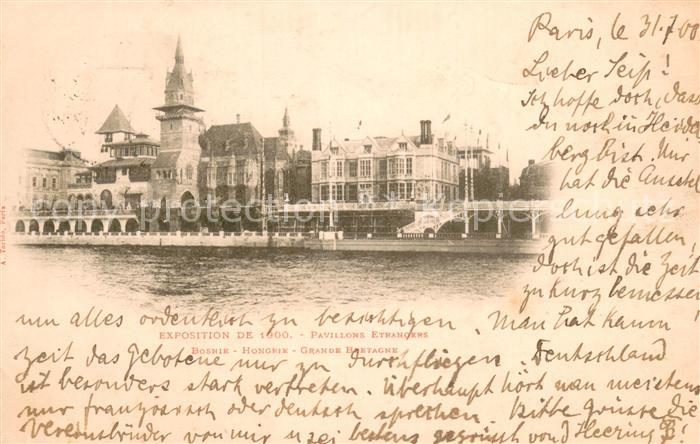 Paris, le 31.7.00
Lieber Seiß!
Ich hoffe doch, dass
du noch in Heidel
berg bist. Mir
hat die Ausstel
lung sehr
gut gefallen
doch ist die Zeit
zu kurz bemessen
um alles ordentlich zu besichtigen. Man hat kaum
EXPOSITION DE 1900. - PAVILLONS ETRANGERS
BOSNIE - HONGRIE - GRANDE BRETAGNE
Zeit das gebotene nur zu durchfliegen. Deutschland
ist besonders stark vertreten. Überhaupt hört man meistens
nur französisch oder deutsch sprechen. Bitte grüsse die
Vereinsbrüder von mir u sei bestens gegrüsst von
A. Taride, Paris
copyright protected